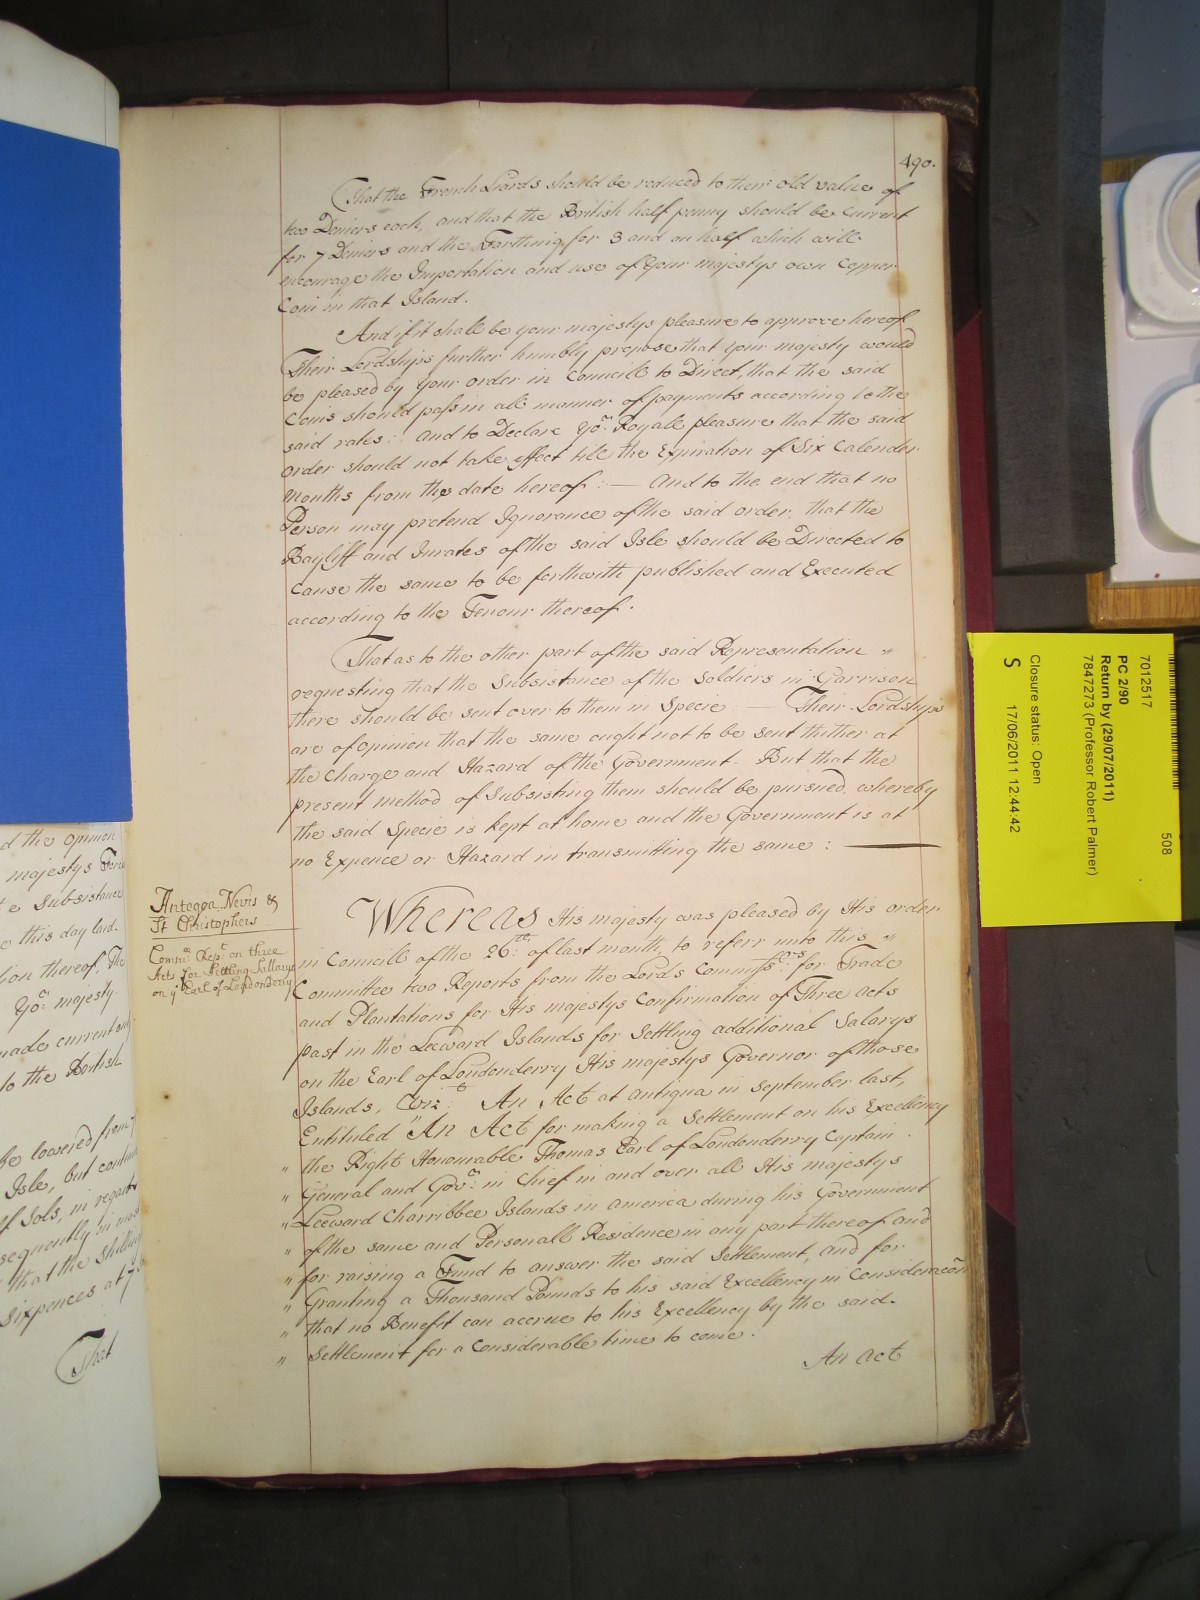 490.
That the French Liards should be reduced to their old value of
two Deniers each, and that the British half penny should be current
for 7 Deniers and the Farthing for 3 and an half which will
encourage the Importation and use of Your majestys own Copper
Coin in that Island.
And if it shall be your majestys pleasure to approve hereof
Their Lordships further humbly propose that your majesty would
be pleased by your order in Councill to Direct, that the said
Coins should pass in all manner of payments according to the
said rates: and to Declare Yor. Royall pleasure that the said
order should not take effect till the Expiration of Six Calender
months from the date hereof: — and to the end that no
Person may pretend Ignorance of the said order: that the
Bayliff and Jurates of the said Isle should be Directed to
cause the same to be forthwith published and Executed
according to the Tenour thereof.
That as to the other part of the said Representation "
requesting that the Subsistance of the Soldiers in Garrison
there should be sent over to them in Specie: — Their Lordships
are of opinion that the same ought not to be sent thither at
the Charge and Hazard of the Government. But that the
present method of Subsisting them should be pursued, whereby
the said Specie is kept at home and the Government is at
no Expence or Hazard in transmitting the same: —
Antegoa, Nevis &
St Christophers
Commee. Rept. on three
Acts for Settling Sallarys
on ye Earl of Londonderry
Whereas His majesty was pleased by His order
in Councill of the 26th: of last month, to referr unto this "
Committee two Reports from the Lords Commissrs: for Trade
and Plantations for His majestys Confirmation of Three acts
past in the Leeward Islands for Settling additional Salarys
on the Earl of Londonderry His majestys Governor of those
Islands, Vizt: An Act at antigua in September last,
Entituled "An Act for making a Settlement on his Excellency
" the Right Honourable Thomas Earl of Londonderry Captain
" General and Govr: in Chief in and over all His majestys
" Leeward Charribbee Islands in america during his Government
" of the same and Personall Residence in any part thereof and
" for raising a Fund to answer the said Settlement, and for
" Granting a Thousand Pounds to his said Excellency in Consideracon
" that no Benefit can accrue to his Excellency by the said
" Settlement for a Considerable time to come.
An act
d the opinion
majestys
e Subsistance
e this day laid
ion thereof, The
Yor. majesty.
made current
to the British
be lowered from
Isle, but
f Sols, in regard
sequently in
that the
Sixpences at 7
That
7012517
508
PC 2/90
Return by (29/07/2011)
7847273 (Professor Robert Palmer)
Closure status: Open
S 17/06/2011 12:44:42